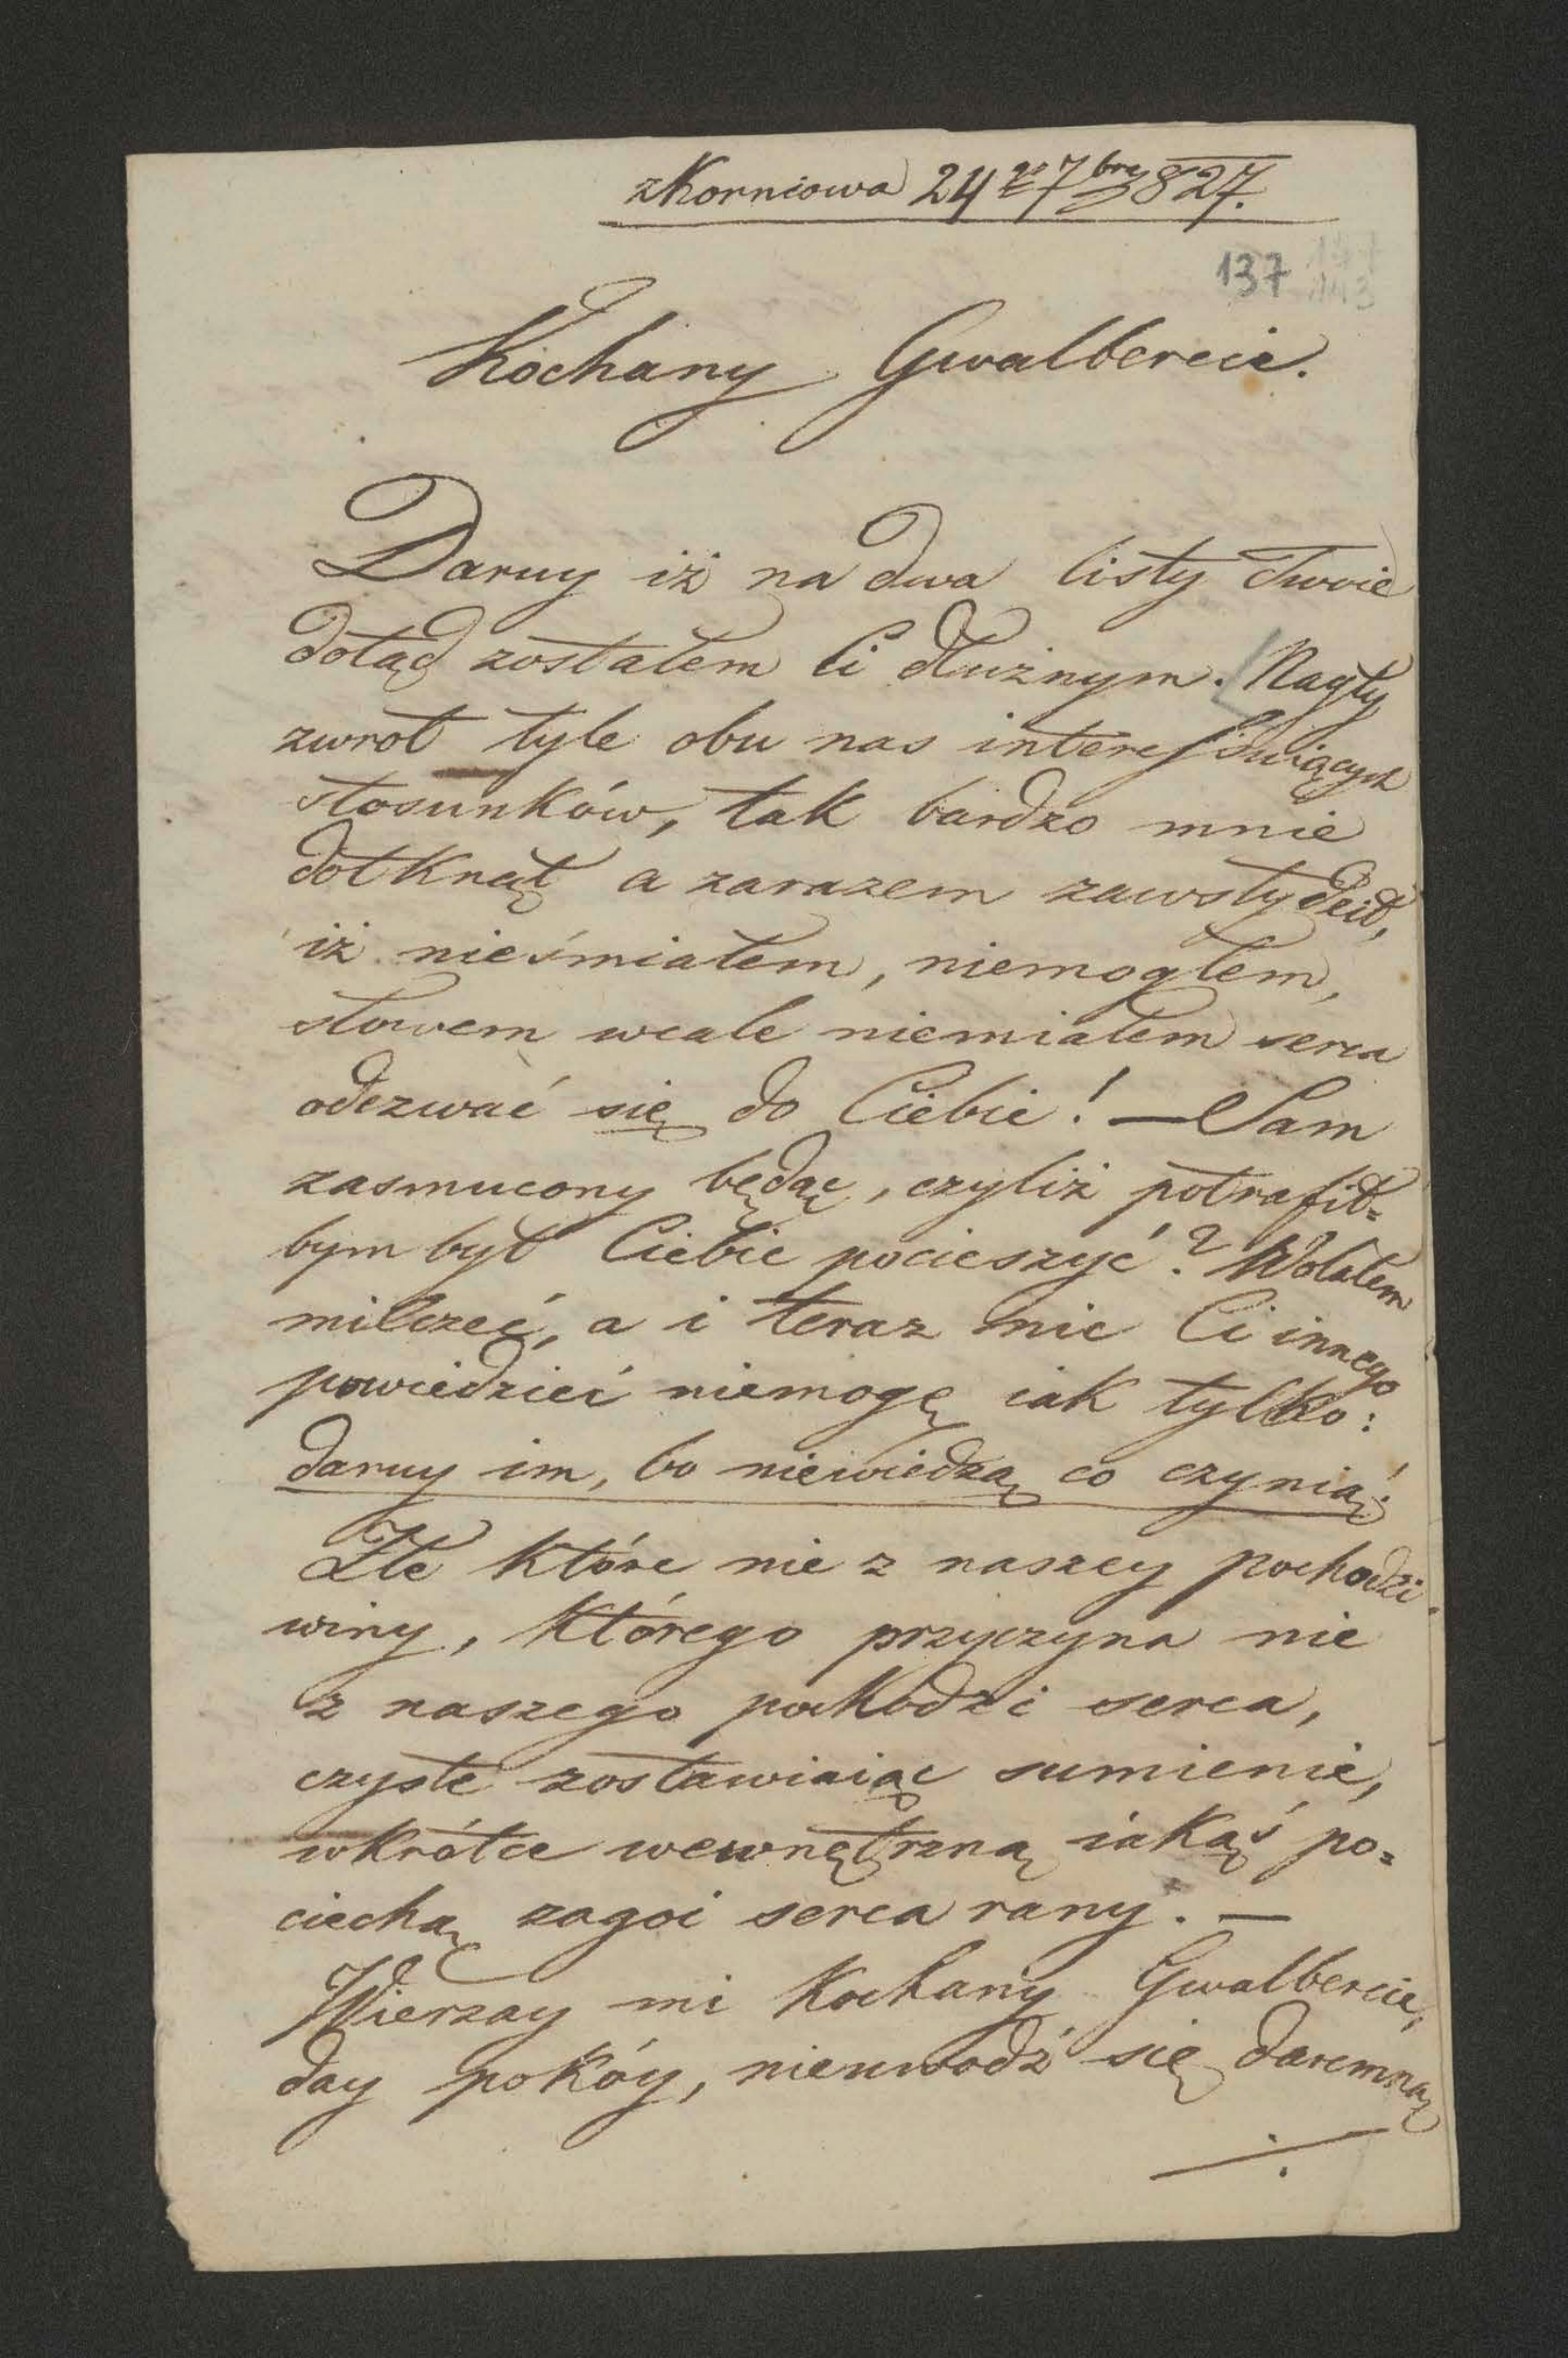 z Korniowa 24go 7bre 827.
137
Kochany Gwalbercie.
Daruy iż na dwa listy Twoie
dotąd zostałem Ci dłużnym. Nagły
zwrot tyle obu nas interessuiących
stosunków, tak bardzo mnie
dotknął a zarazem zawstydził,
iż nieśmiałem, niemogłem,
słowem wcale niemiałem serca
odezwać się do Ciebie! — Sam
zasmucony będąc, czyliż potrafił=
bym był Ciebie pocieszyć? Wolałem
milczeć, a i teraz nic Ci innego
powiedzieć niemogę iak tylko:
daruy im, bo niewiedzą co czynią!
Złe które nie z naszey pochodzi
winy, którego przyczyna nie
z naszego pochodzi serca,
czyste zostawiaiąc sumienie,
wkrótce wewnętrzną iakąś po=
ciechą zagoi serca rany. —
Wierzay mi Kochany Gwalbercie,
day pokóy, nieuwodź się daremną